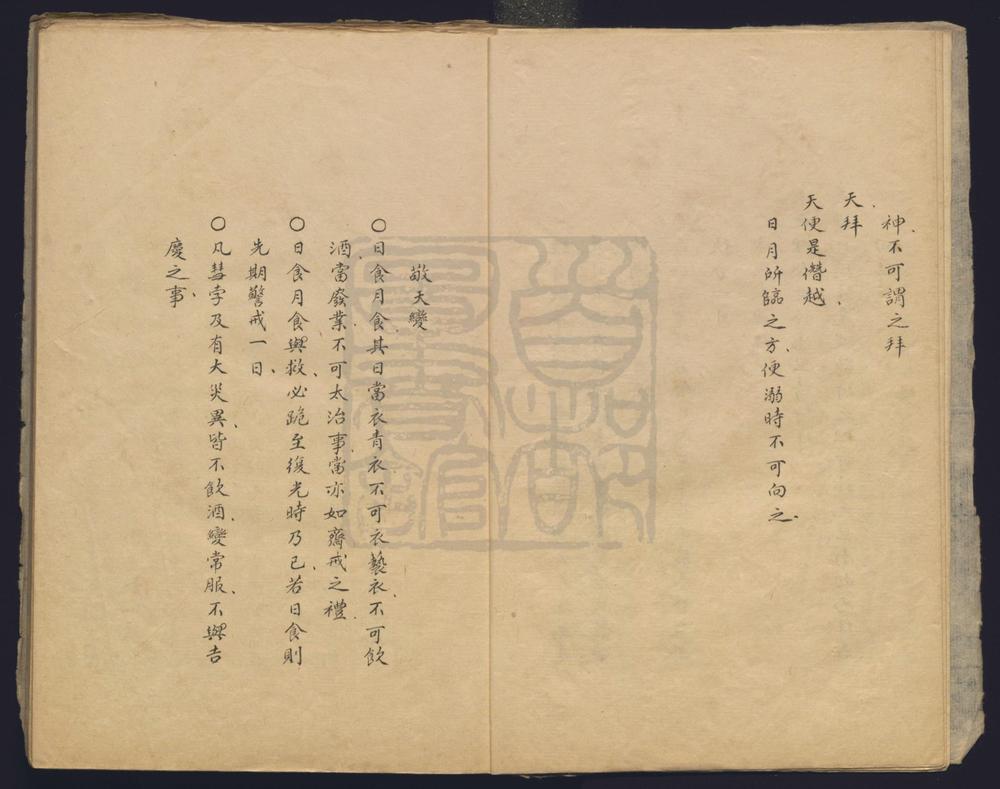 神不可謂之拜
天拜
天便是僭越
日月所臨之方便溺時不可向之
敬天變
○日食月食其日當衣青衣不可衣褻衣不可飲
酒當廢業不可太治事當亦如齋戒之禮
○日食月食與救必跪至復光時乃已若日食則
先期警戒一日
○凡彗孛及有大災異皆不飲酒變常服不與吉
慶之事